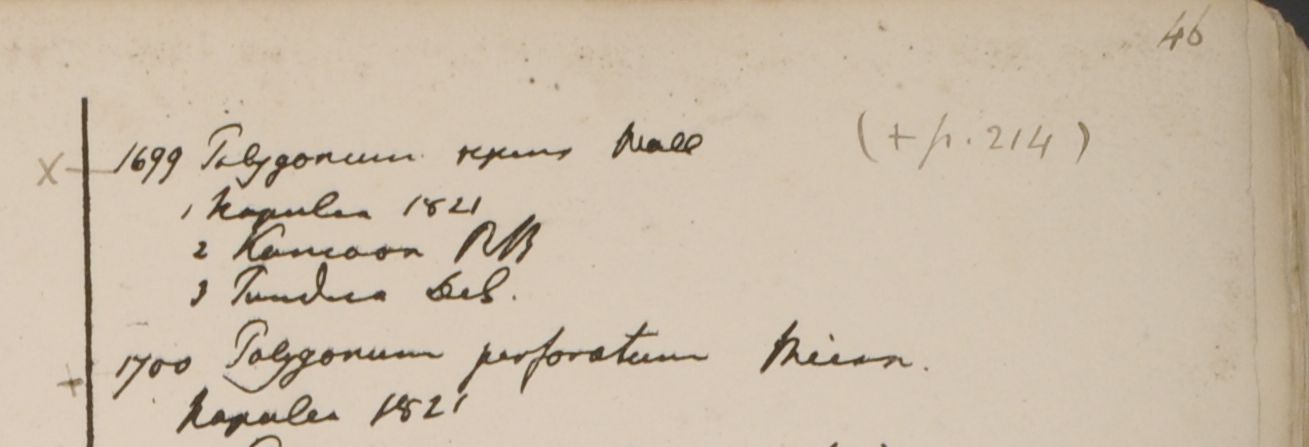 46
X 1699 Polygonum repens Wall (+ p. 214)
1 Napulia 1821
2 Kamaon RB
3 Tundra
+ 1700 Polygonum perforatum Meisn.
Napalia 1821